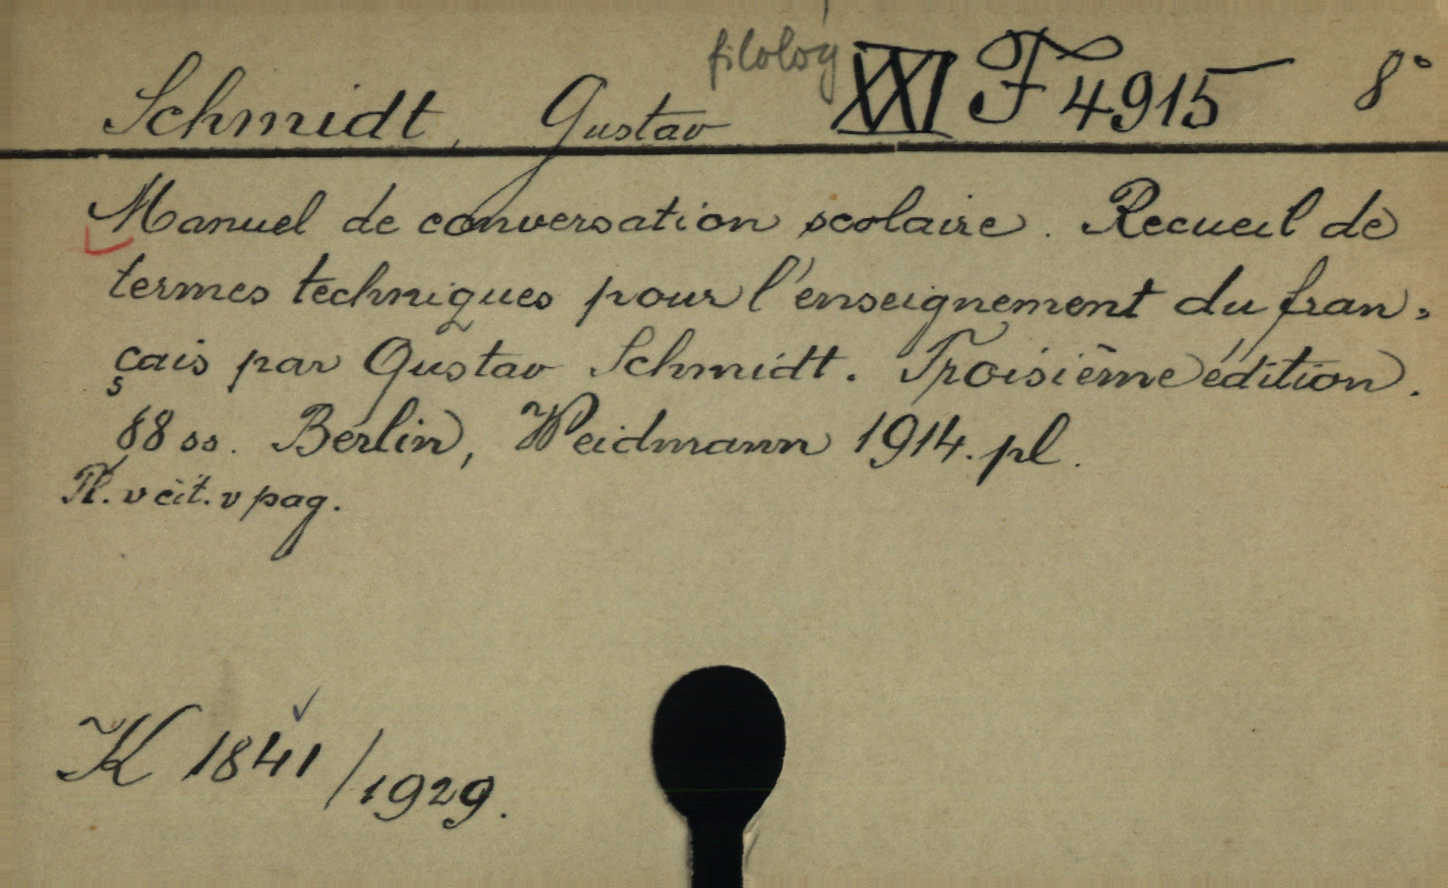 filolog XXI F 4915 8°
Schmidt, Gustav
Manuel de conversation scolaire. Recueil de
termes techniques pour l'enseignement du fran=
çais par Gustav Schmidt. Troisième édition.
88 ss. Berlin, Weidmann 1914. pl.
Pl. v čít. v pag.
K 1841/1929.